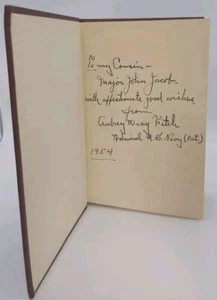 To my Cousin –
Major John Jacob
with affectionate good wishes
from
Aubrey Wray Fitch
Admiral U S Navy (Ret.)
1954